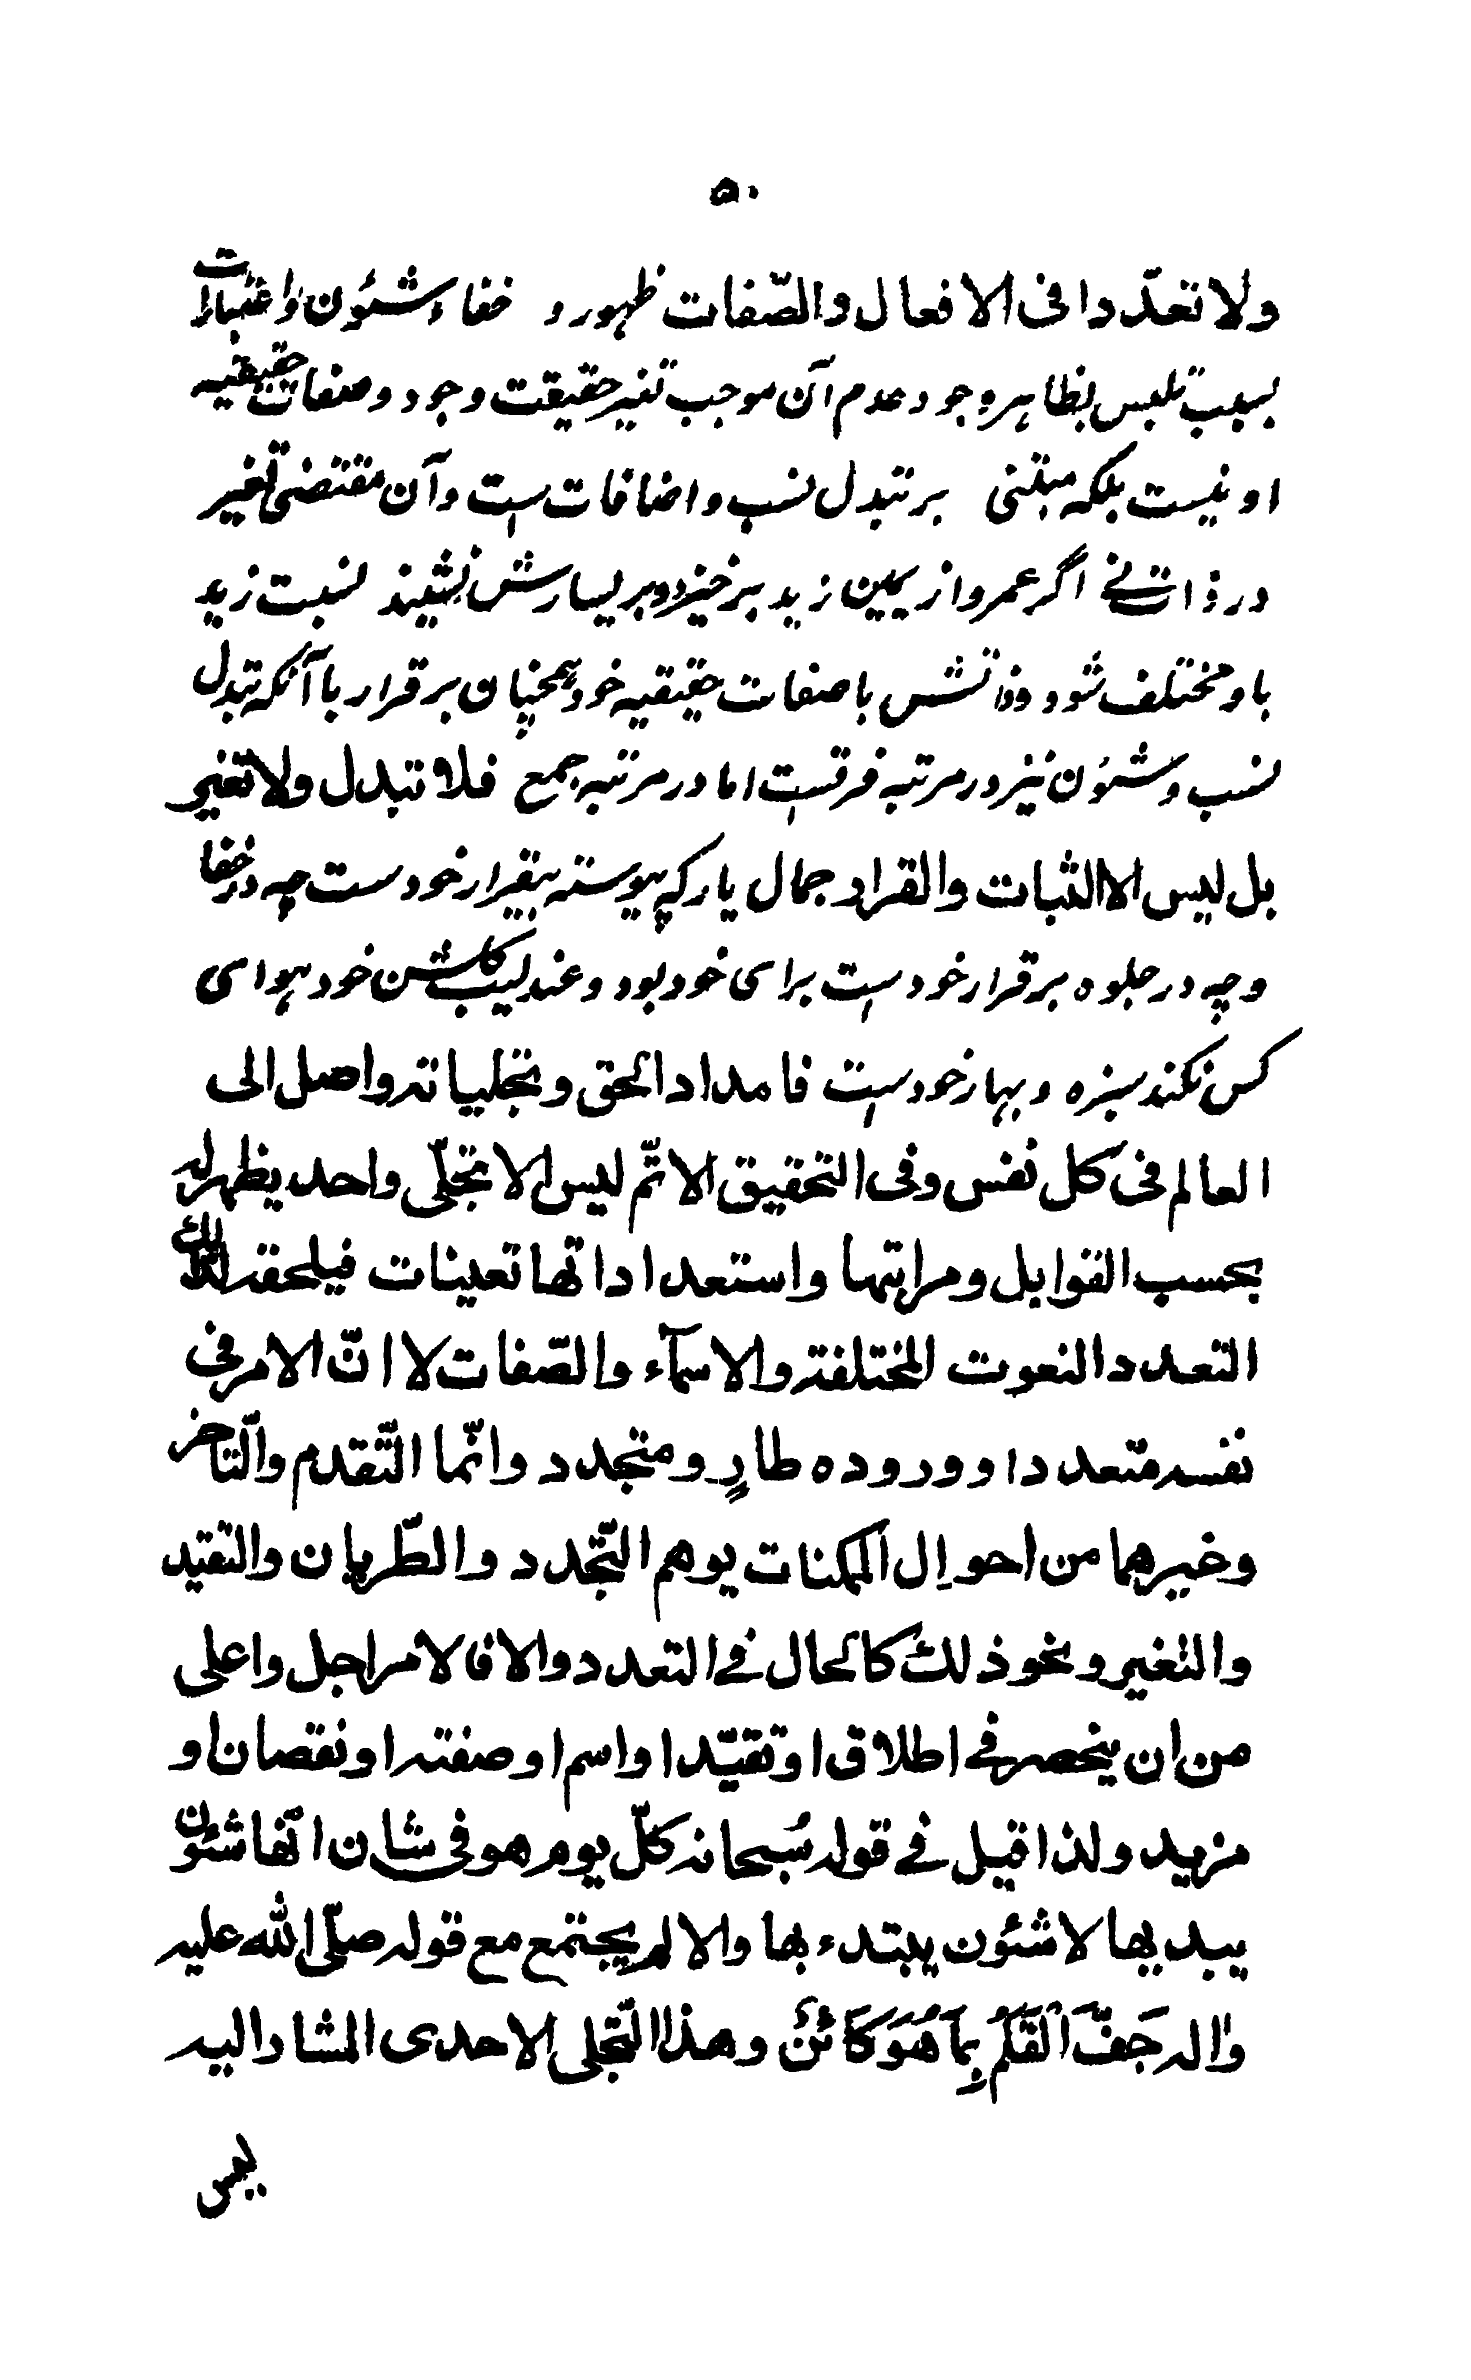 ۵۰
ولا تعدّدا فی الافعال والصّفات ظهور و خفاء شئون واعتبارات
بسبب تلبس بظاهر وجود عدم آن موجب تغیر حقیقت وجود وصفات حقیقیه
او نیست بلکه مبتنی بر تبدل نسب و اضافات ست وآن مقتضی تغیر
در ذات نے اگر عمرو از یمین زید برخیزد و بر یسارش نشیند نسبت زید
با و مختلف شود و ذاتش با صفات حقیقیه خود همچنان برقرار با آنکه تبدل
نسب و شئون نیز در مرتبه فرقست اما در مرتبه جمع فلا تبدل ولا تغیر
بل لیس الا الثبات والقرار جمال یار که پیوسته بیقرار خودست چه در خفا
وچه در جلوه برقرار خودست برای خود بود و عندلیب گلشن خود بهوای
کس نکند سبزه و بهار خودست فامداد الحق وتجلیاته واصل الی
العالم فی کل نفس وفی التحقیق الاتمّ لیس الا تجلّی واحد یظهر له
بحسب القوابل ومراتبها واستعداداتها تعینات فیلحقه لذلك
التعدد النعوت المختلفة والاسمآء والصّفات لا انّ الامر فی
نفسه متعدد او وروده طارٍ ومتجدد وانّما التّقدم والتّاخر
وغیرهما من احوال الممکنات یوهم التّجدد والطّریان والتقید
والتغیر ونحو ذلك کالحال فے التعدد والا فالامر اجل واعلی
من ان ینحصر فے اطلاق او تقیّد او اسم او صفته او نقصان او
مزید ولذا قیل فے قوله سُبحانه کلّ یوم هو فی شان انّها شئون
یبدیها لا شئون یبتدء بها والا لم یجتمع مع قوله صلّی الله علیه
واله جَفَّ الْقَلَمُ بِمَا هُوَ کَائِنٌ وهذا التّجلی الاحدی المشار الیه
لیس